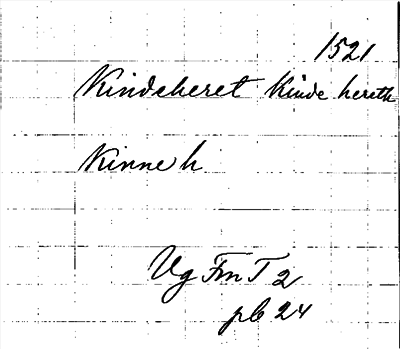 1521
Kindeheret Kinde hereth
Kinneh
Vg Fm T 2
pb 24